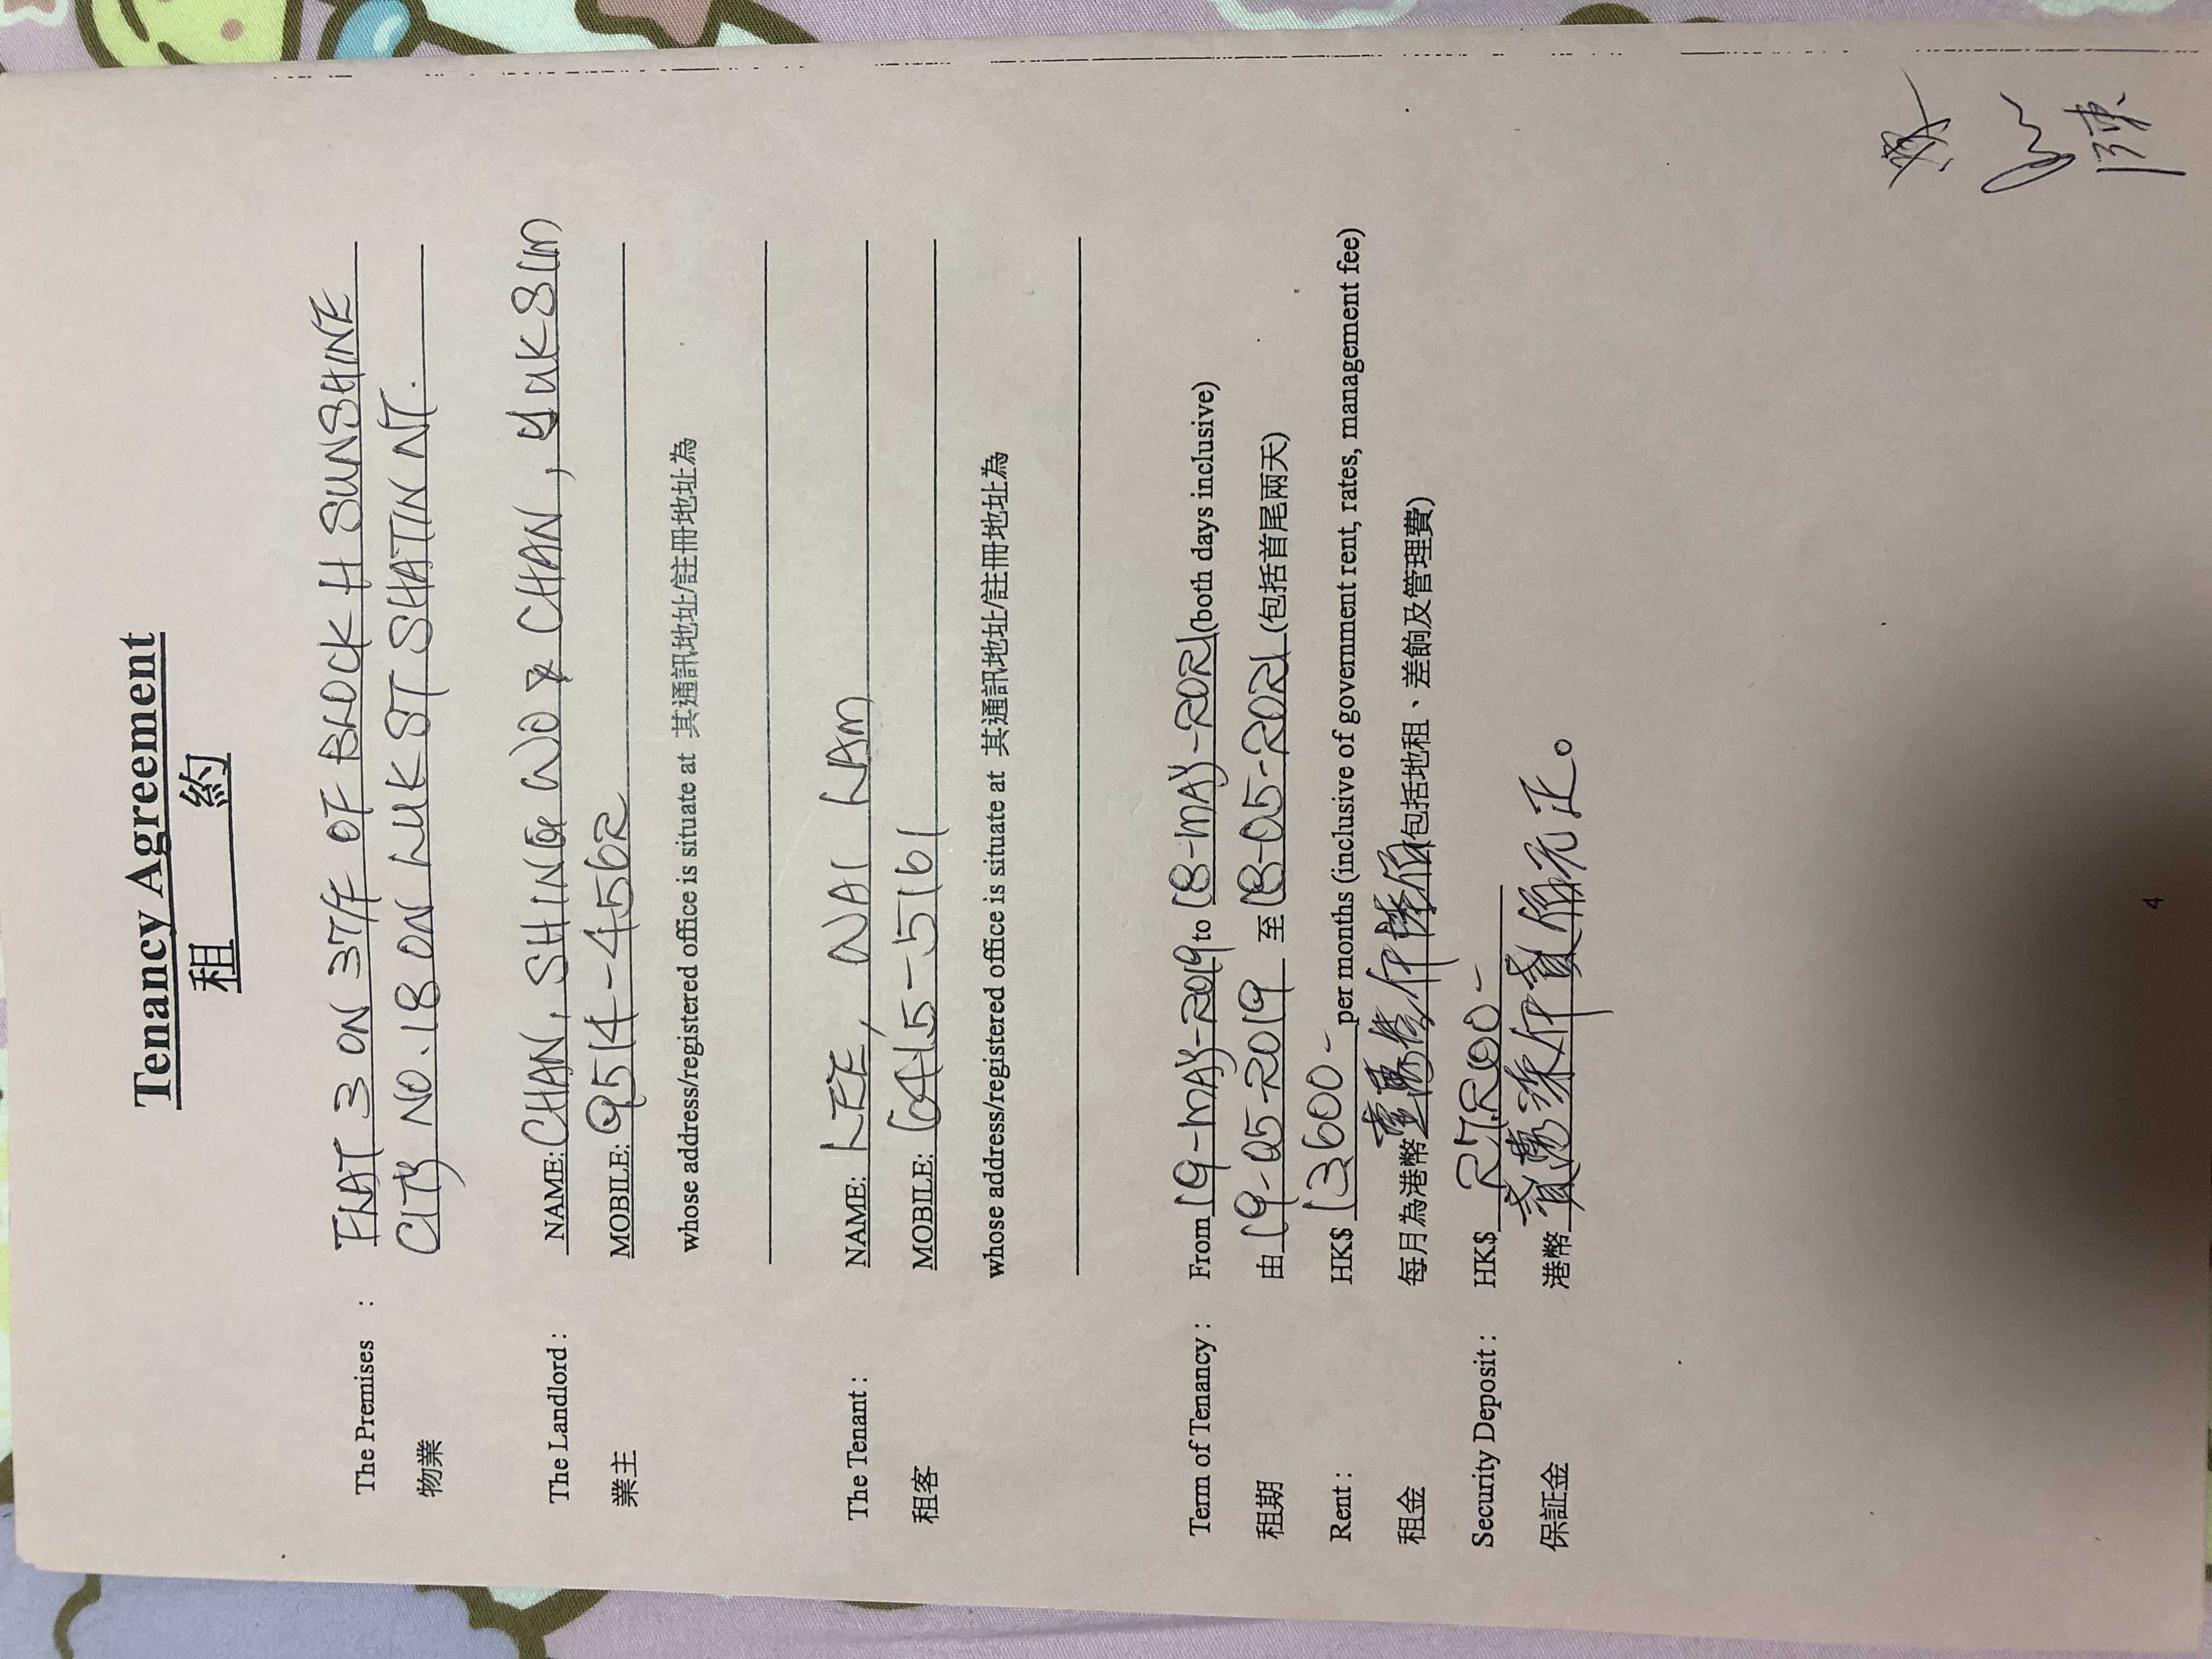 Tenancy Agreement
租 約
The Premises : FLAT 3 ON 37/F OF BLOCK H SUNSHINE
物業 CITY NO.18 ON LUK ST SHATIN NT.
The Landlord : NAME: CHAN, SHING WO & CHAN, YUK SIM
業主 MOBILE: 9514-4562
whose address/registered office is situate at 其通訊地址/註冊地址為
The Tenant : NAME: LEE, WAI LAM
租客 MOBILE: 6415-5161
whose address/registered office is situate at 其通訊地址/註冊地址為
Term of Tenancy : From 19-MAY-2019 to 18-MAY-2021 (both days inclusive)
租期 由 19-05-2019 至 18-05-2021 (包括首尾兩天)
Rent : HK$ 13600- per months (inclusive of government rent, rates, management fee)
租金 每月為港幣 壹萬叁仟陸佰 (包括地租、差餉及管理費)
Security Deposit : HK$ 27200-
保証金 港幣 貳萬柒仟貳佰元正。
陳
4